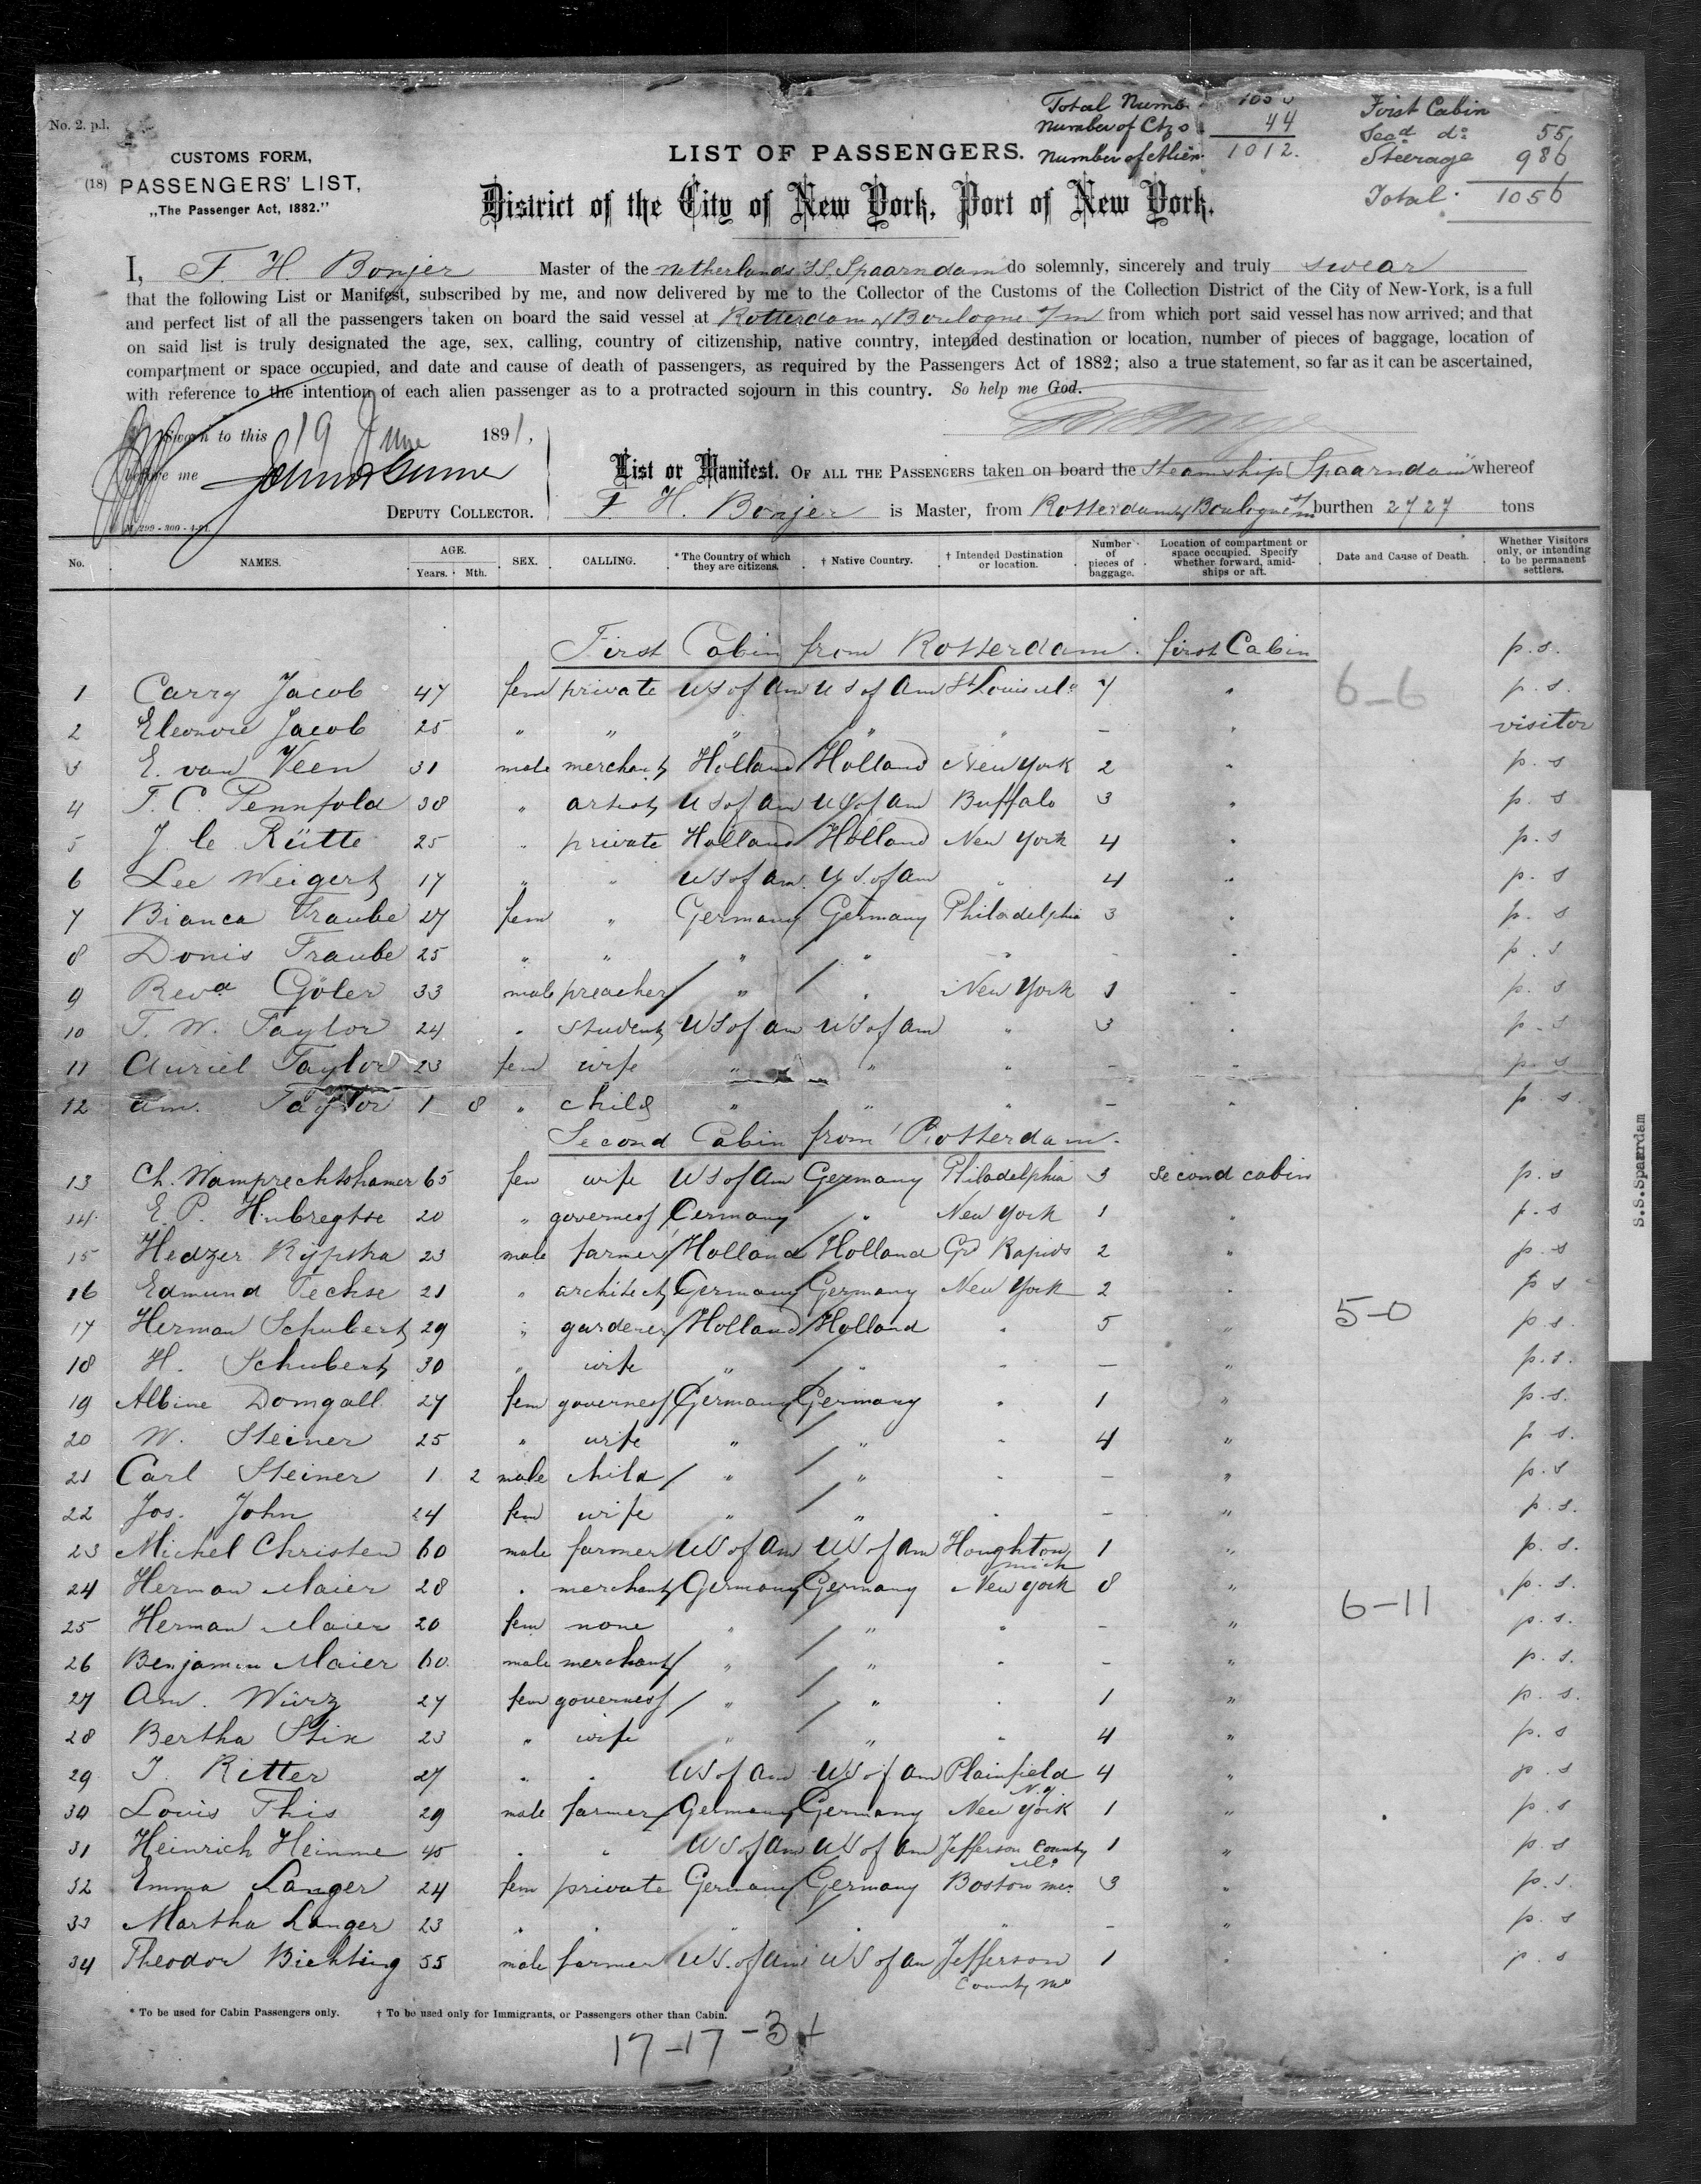 No. 2. p.l.
Total Numb.
Number of Ctzs 44
Number of Alien. 1012.
First Cabin
Secd do 55,
Steerage 986
Total 1056
CUSTOMS FORM,
(18) PASSENGERS' LIST,
„The Passenger Act, 1882."
LIST OF PASSENGERS.
District of the City of New York, Port of New York.
I, F. H Bonjer Master of the Netherlands SS. Spaarndam do solemnly, sincerely and truly swear
that the following List or Manifest, subscribed by me, and now delivered by me to the Collector of the Customs of the Collection District of the City of New-York, is a full
and perfect list of all the passengers taken on board the said vessel at Rotterdam & Boulogne s/m from which port said vessel has now arrived; and that
on said list is truly designated the age, sex, calling, country of citizenship, native country, intended destination or location, number of pieces of baggage, location of
compartment or space occupied, and date and cause of death of passengers, as required by the Passengers Act of 1882; also a true statement, so far as it can be ascertained,
with reference to the intention of each alien passenger as to a protracted sojourn in this country. So help me God.
Sworn to this 19 June 1891,
before me
DEPUTY COLLECTOR.
M. 299 - 300 - 4-91.
List or Manifest. OF ALL THE PASSENGERS taken on board the Steamship Spaarndam" whereof
F. H. Bonjer is Master, from Rotterdam & Boulogne s/m burthen 2727 tons
No. NAMES. AGE. Years. Mth. SEX. CALLING. * The Country of which they are citizens. † Native Country. † Intended Destination or location. Number of pieces of baggage. Location of compartment or space occupied. Specify whether forward, amidships or aft. Date and Cause of Death. Whether Visitors only, or intending to be permanent settlers.
First Cabin from Rotterdam. first Cabin p. s.
1 Carry Jacob 47 fem private US of Am US of Am St Louis Mo 7 " 6-6 p. s.
2 Eleonore Jacob 25 " " " " " - " visitor
3 E. van Veen 31 male merchant Holland Holland New York 2 " p. s
4 F. C. Pennfold 38 " artist US of Am US of Am Buffalo 3 " p. s
5 J. le Rütte 25 " private Holland Holland New York 4 " p. s
6 Lee Weigert 17 " " US of Am. US. of Am " 4 " p. s
7 Bianca Traube 27 fem " Germany Germany Philadelphia 3 " p. s
8 Donis Traube 25 " " " " " - " p. s
9 Revd Göler 33 male preacher " " New York 1 " p. s
10 T. W. Taylor 24 " student US of Am US of Am " 3 " p. s
11 Auriel Taylor 23 fem wife " " " - " p. s
12 Am. Taylor 1 8 " child " " " - " p. s.
Second Cabin from Rotterdam.
13 Ch. Wamprechtshamer 65 fem wife US of Am Germany Philadelphia 3 Second cabin p. s
14 E. P. Hubregtse 20 " governess Germany " New York 1 " p. s
15 Hedzer Rypstra 23 male farmer Holland Holland Gd Rapids 2 " p. s
16 Edmund Techse 21 " architect Germany Germany New York 2 " p s
17 Herman Schubert 29 " gardener Holland Holland " 5 " 5-0 p. s.
18 H. Schubert 30 " wife " " " - " p. s.
19 Albine Domgall 27 fem governess Germany Germany " 1 " p. s.
20 W. Steiner 25 " wife " " " 4 " p s.
21 Carl Steiner 1 2 male child " " " - " p. s
22 Jos. John 24 fem wife " " " - " p. s.
23 Michel Christen 60 male farmer US of Am US of Am Houghton Mich 1 " p. s.
24 Herman Maier 28 " merchant Germany Germany New York 8 " 6-11 p. s.
25 Herman Maier 20 fem none " " " - " p. s.
26 Benjamin Maier 60 male merchant " " " - " p. s.
27 Am. Würz 27 fem governess " " " 1 " p. s.
28 Bertha Stix 23 " wife " " " 4 " p. s
29 J. Ritter 27 " " US of Am US of Am Plainfield N.J. 4 " p. s
30 Louis This 29 male farmer Germany Germany New York 1 " p. s
31 Heinrich Heinme 45 " " US of Am US of Am Jefferson County Mo 1 " p s
32 Emma Langer 24 fem private Germany Germany Boston 3 " p. s.
33 Martha Langer 23 " " " " " - " p. s
34 Theodor Bichting 55 male farmer US. of Am US of Am Jefferson County Mo 1 " p. s
* To be used for Cabin Passengers only. † To be used only for Immigrants, or Passengers other than Cabin.
17-17-34
S.S. Spaarndam